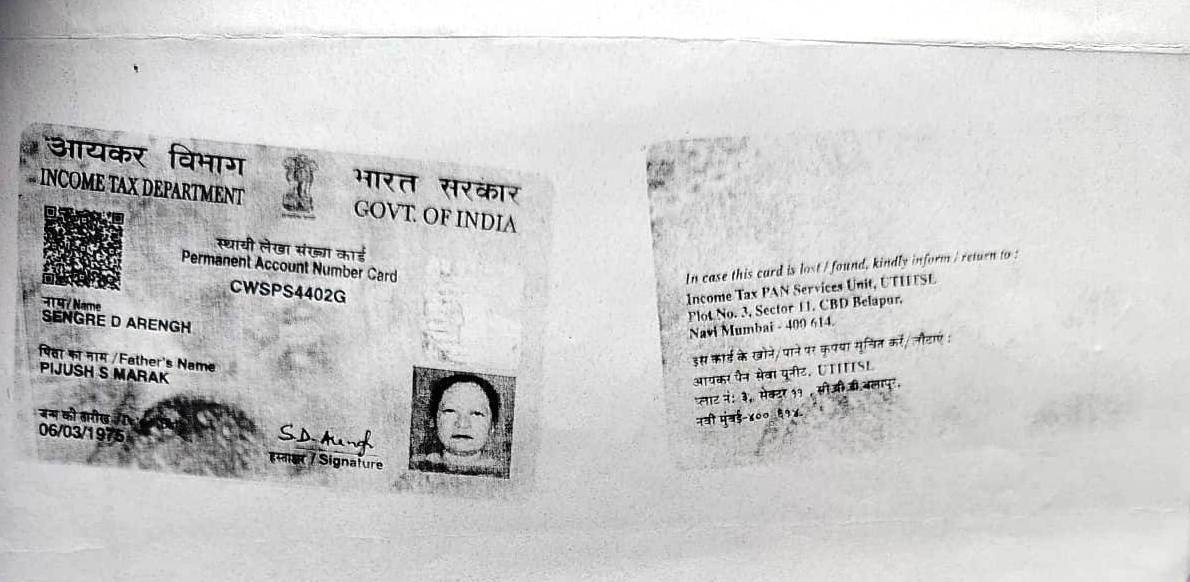 आयकर विभाग
INCOME TAX DEPARTMENT
भारत सरकार
GOVT. OF INDIA
स्थायी लेखा संख्या कार्ड
Permanent Account Number Card
CWSPS4402G
नाम/Name
SENGRE D ARENGH
पिता का नाम /Father's Name
PIJUSH S MARAK
जन्म की तारीख /
06/03/1975
S.D. Arengh
हस्ताक्षर / Signature
In case this card is lost / found, kindly inform / return to :
Income Tax PAN Services Unit, UTIITSL
Plot No. 3, Sector 11, CBD Belapur,
Navi Mumbai - 400 614.
इस कार्ड के खोने/पाने पर कृपया सूचित करें/लौटाएं :
आयकर पैन सेवा यूनीट, UTIITSL
प्लाट नं: ३, सेक्टर ११ , सी.बी.डी.बेलापूर,
नवी मुंबई-४०० ६१४.